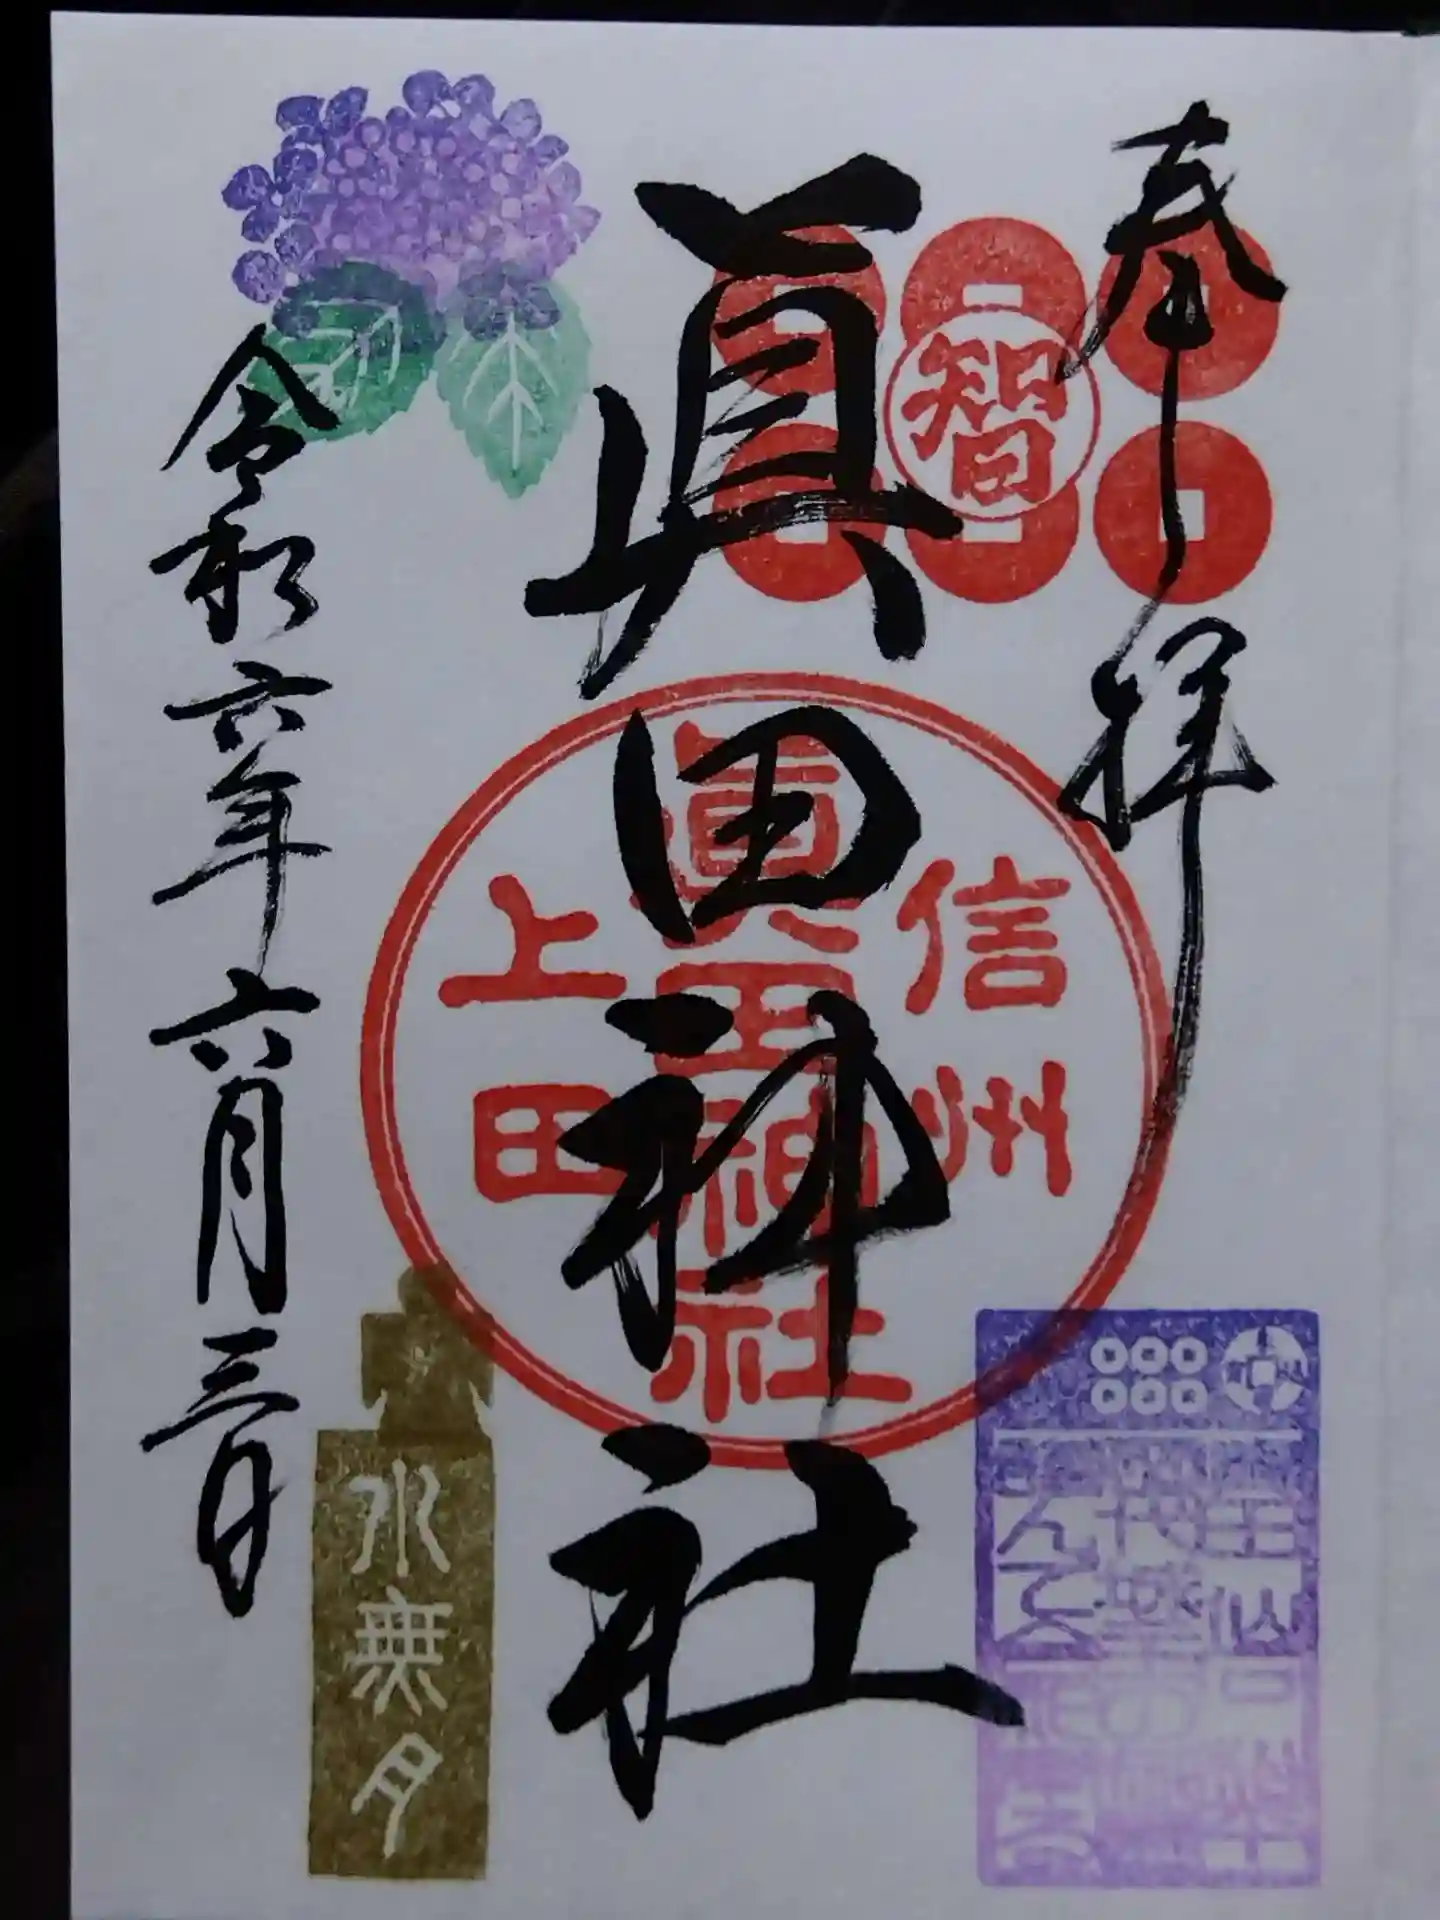 奉拝
智
眞田神社
信州
眞田神社
上田
令和六年六月三日
水無月